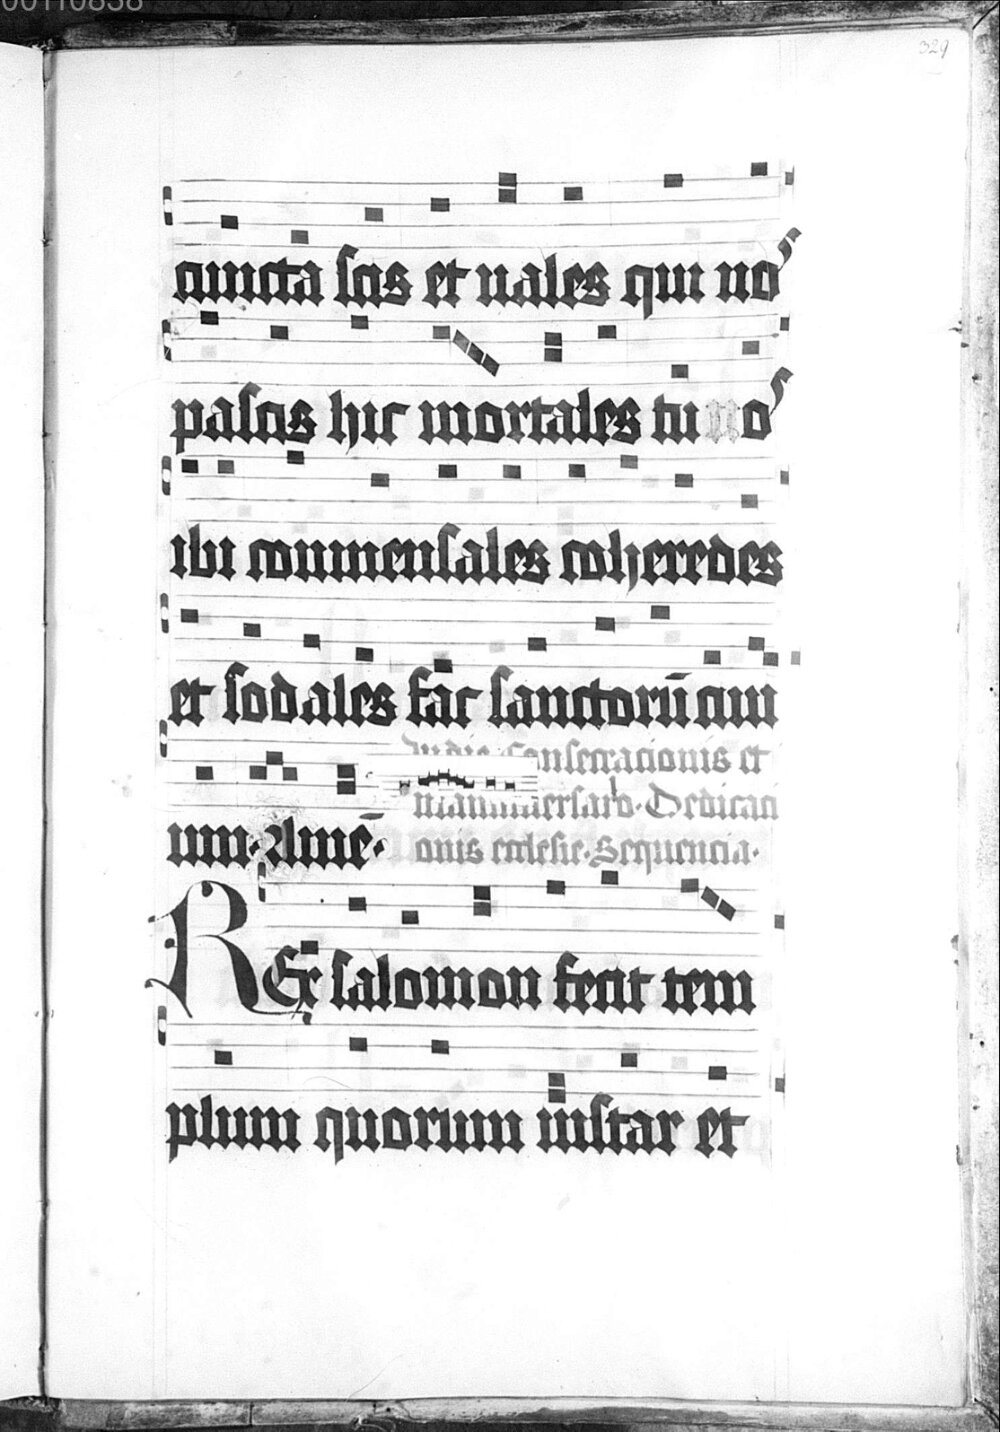 00110838
329
cuncta scis et uales qui no'
pascis hic mortales tu no'
ibi conmensales coheredes
et sodales fac sanctorū ciui
In die Consecracionis et
um. Amē.
in anniuersario. Dedicaci
onis ecclesie. Sequencia.
REx salomon fecit tem
plum quorum instar et